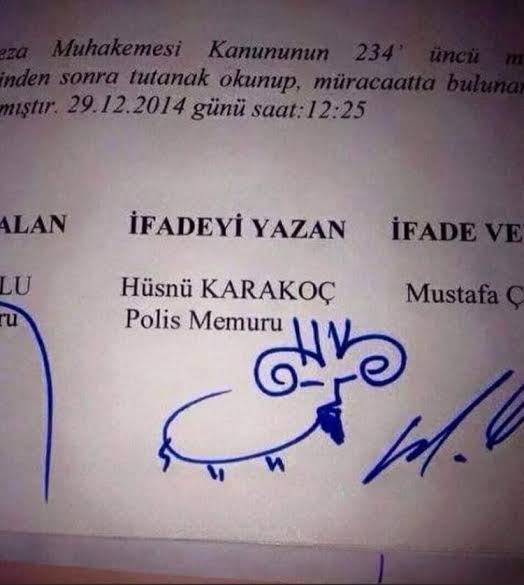 eza Muhakemesi Kanununun 234' üncü m
inden sonra tutanak okunup, müracaatta bulunan
mıştır. 29.12.2014 günü saat:12:25
ALAN İFADEYİ YAZAN İFADE VE
LU Hüsnü KARAKOÇ Mustafa Ç
ru Polis Memuru
HK